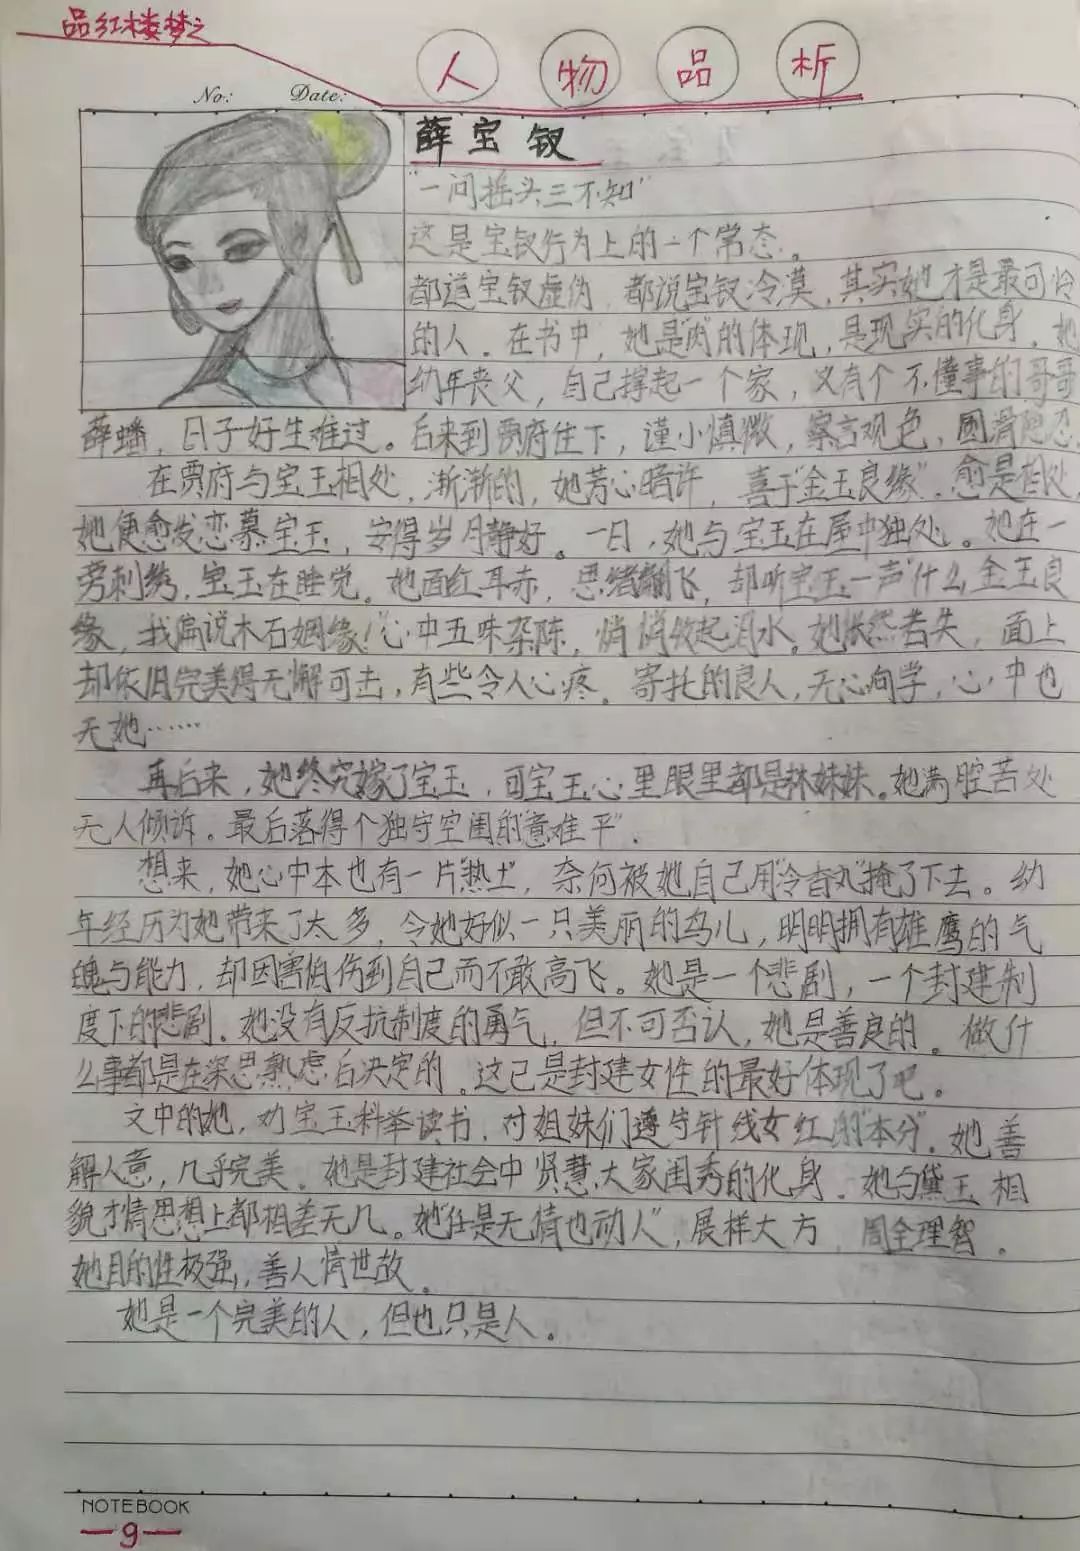 品红楼梦之
人物品析
No: Date:
薛宝钗
"一问摇头三不知"
这是宝钗行为上的一个常态。
都道宝钗虚伪，都说宝钗冷漠，其实她才是最可怜
的人。在书中，她是"肉"的体现，是现实的化身。她
幼年丧父，自己撑起一个家，又有个不懂事的哥哥
薛蟠，日子好生难过。后来到贾府住下，谨小慎微，察言观色，圆滑隐忍
在贾府与宝玉相处，渐渐的，她芳心暗许，喜于"金玉良缘"。愈是相处，
她便愈发恋慕宝玉，安得岁月静好。一日，她与宝玉在屋中独处。她在一
旁刺绣，宝玉在睡觉。她面红耳赤，思绪翻飞，却听宝玉一声"什么金玉良
缘，我偏说木石姻缘！"心中五味杂陈，悄悄收起泪水。她怅然若失，面上
却依旧完美得无懈可击，有些令人心疼。寄托的良人，无心向学，心中也
无她……
再后来，她终究嫁了宝玉，可宝玉心里眼里都是林妹妹。她满腔苦处
无人倾诉。最后落得个独守空闺的"意难平"。
想来，她心中本也有一片"热土"，奈何被她自己用"冷香丸"掩了下去。幼
年经历为她带来了太多，令她好似一只美丽的鸟儿，明明拥有雄鹰的气
魄与能力，却因害怕伤到自己而不敢高飞。她是一个悲剧，一个封建制
度下的悲剧。她没有反抗制度的勇气，但不可否认，她是善良的。做什
么事都是在深思熟虑后决定的。这已是封建女性的最好体现了吧。
文中的她，劝宝玉科举读书，对姐妹们遵守针线女红的"本分"。她善
解人意，几乎完美。她是封建社会中贤慧大家闺秀的化身。她与黛玉相
貌才情思想上都相差无几。她"任是无情也动人"，展样大方，周全理智。
她目的性极强，善人情世故。
她是一个完美的人，但也只是人。
NOTEBOOK
—9—